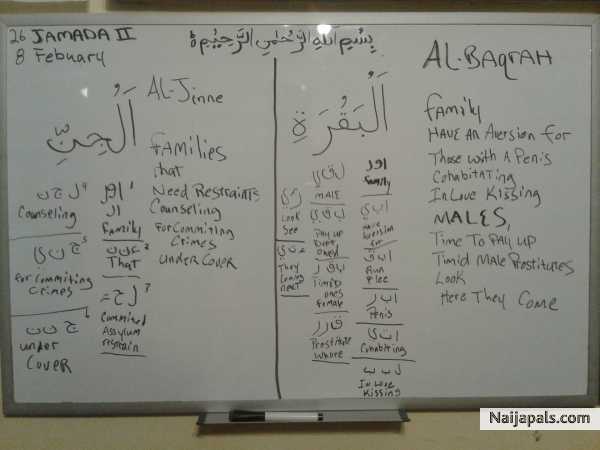 26 JAMADA II
8 Febuary
بِسْمِ اللهِ الرَّحْمٰنِ الرَّحِيْمِ
AL-BAQrAH
اَلْجِنِّ
AL-Jinne
fAmilies
that
Need Restraints
Counseling
For Commiting
Crimes
UNDER COVER
ل ج ن 4
Counseling
ج ن ي 5
For Commiting
Crimes
ج ن ن 6
UNDER
COVER
1
ا ل
Family
ع ن ن 2
That
3
Commited
Assylum
restrain
اَلْبَقَرَةِ
ل ق ي
MALE
ب ق ي
PAY UP
Dept
owed
ب ق ر
TIMID
ones
Female
ق ر ر
Prostitute
Whore
ر ي
Look
See
They
Coming
next
Family
ا ب ي
Have
Aversion
for
ا ب ق
Run
Flee
ا ب ر
Penis
ا ت ي
Cohabiting
ل ب ب
In Love
Kissing
family
HAVE AN Aversion for
Those with A Penis
Cohabitating
In Love Kissing
MALES,
Time To PAY UP
Timid Male Prostitutes
Look
Here They Come
Naijapals.com